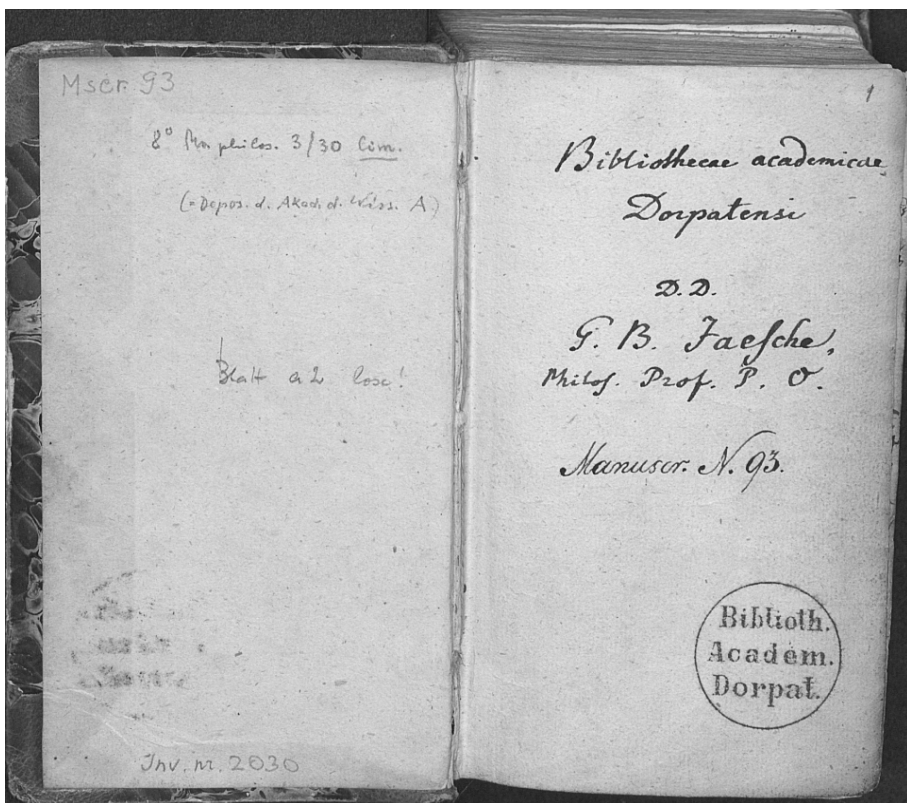 Mscr. 93
8° Ms philos. 3/30 Cim.
(= Depos. d. Akad. d. Wiss. A.)
Blatt a 2 lose!
Inv. nr. 2030
1
Bibliothecae academicae
Dorpatensi
D.D.
G. B. Jaesche,
Philos. Prof. P. O.
Manuscr. N. 93.
Biblioth.
Academ.
Dorpat.